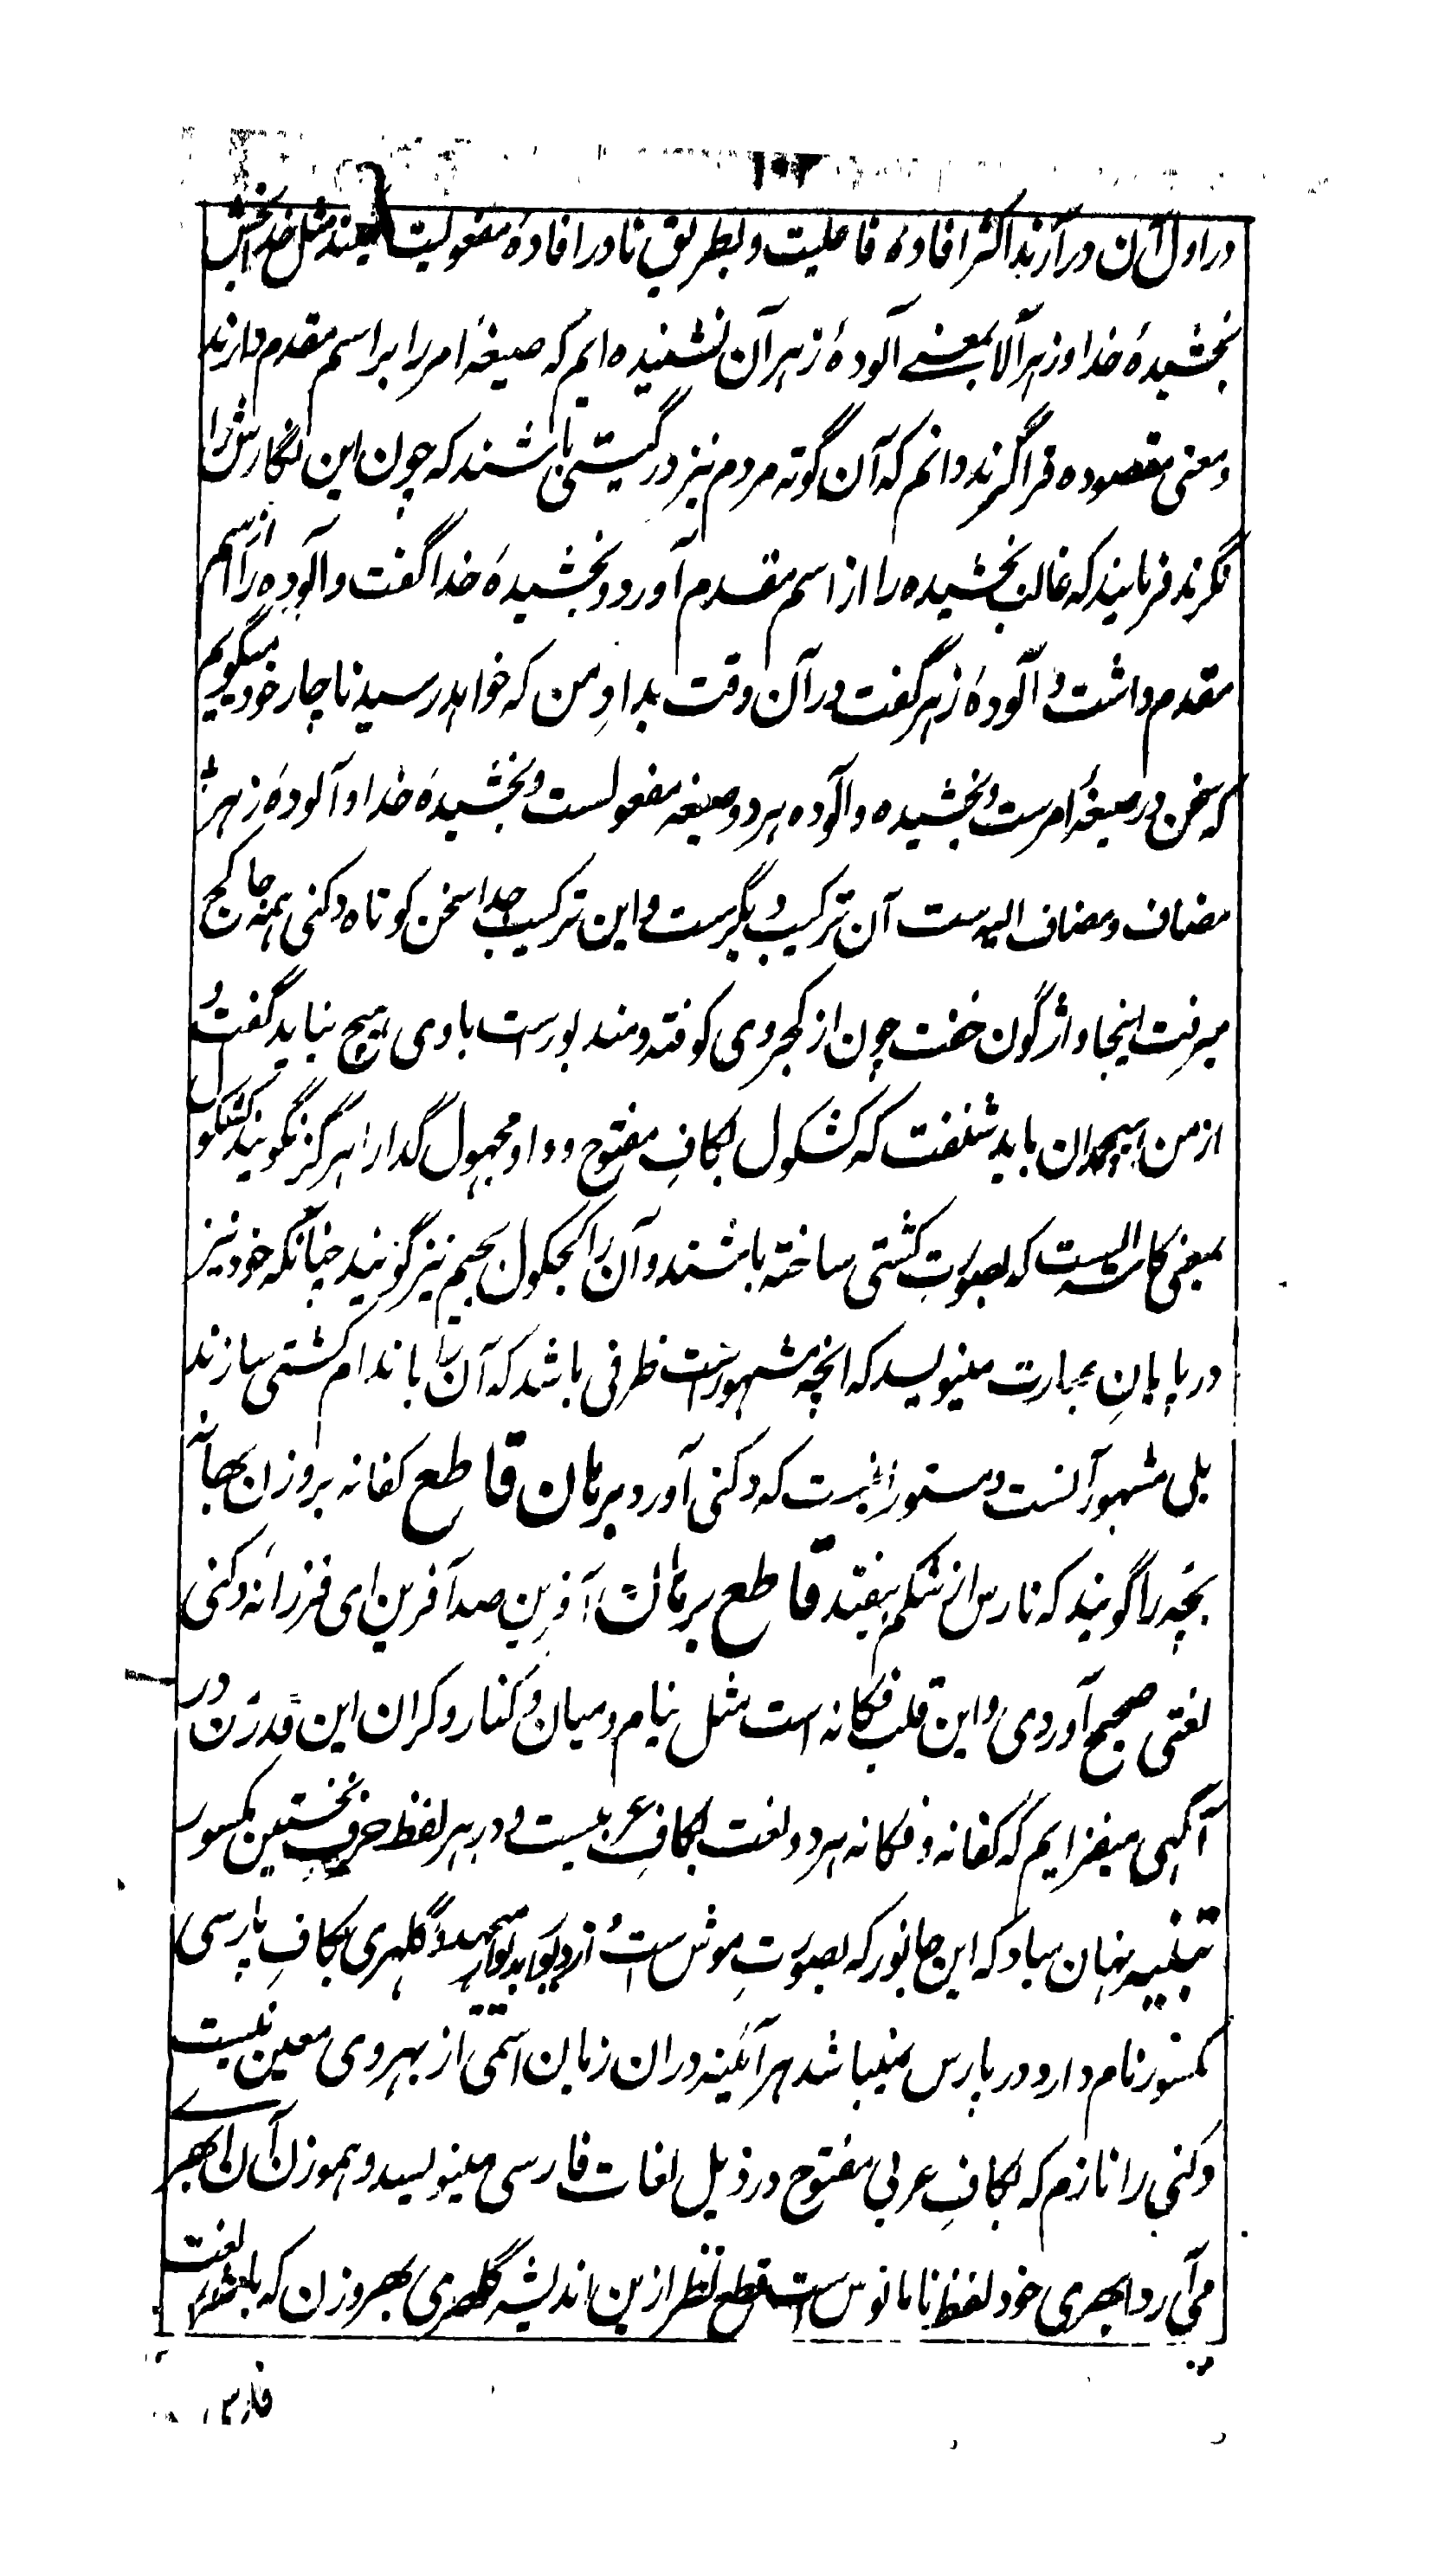 ۱۰۲
در اول آن در آرند اکثر افادهٔ فاعلیت و بطریق نادر افادهٔ مفعولیت کنند مثل خدا بخش
بخشیدهٔ خدا و زهر آلا بمعنی آلودهٔ زهر آن نشنیده ایم که صیغهٔ امر را بر اسم مقدم دارند
و معنی مقصوده فراگیرند دانم که آن گونه مردم نیز در گیتی باشند که چون این نگارش را
نگرند فرمایند که غالب بخشیده را از اسم مقدم آورد و بخشیدهٔ خدا گفت و آلوده را از اسم
مقدم داشت و آلودهٔ زهر گفت در آن وقت بدادِ من که خواهد رسید ناچار خود میگویم
که سخن در صیغهٔ امرست و بخشیده و آلوده هر دو صیغه مفعولست و بخشیدهٔ خدا و آلودهٔ زهر
مضاف و مضاف الیه ست آن ترکیب دیگرست و این ترکیب جدا سخن کوتاه دکنی همه جا کج
میرفت اینجا واژگون خفت چون از کجروی کوفته و مند بورست باوی هیچ نباید گفت و
از من هیچمدان باید شنفت که کشکول بکافِ مفتوح و واو مجهول گدا را هرگز نگویند کشکول
بمعنی کاسه الیست که بصورتِ کشتی ساخته باشند و آن را کجکول بجیم نیز گویند چنانکه خود نیز
در پایانِ عبارت مینویسد که انچه مشهورست ظرفی باشد که آن را باندام کشتی سازند
بلی مشهور آنست و مستور اینست که دکنی آورد برهان قاطع کفانه بروزن بهانه
بچه را گویند که نارس از شکم بیفتد قاطع برهان آفرین صد آفرین ای فرزانه دکنی
لغتی صحیح آوردی و این قلب فکانه است مثل نیام و میان و کنار و کران این قدر من در
آگهی میفزایم که کفانه و فکانه هر دو لغت بکافِ عربیست و در هر لفظ حرف نخستین مکسور
تنبیه پنهان مباد که این جانور که بصورتِ موش ست و از دیوار بدیوار میجهد و گلهری بکافِ پارسی
مکسور نام دارد در پارس نمیباشد هر آئینه در ان زبان اسمی از بهروی معین نیست
دکنی را نازم که بکافِ عربی مفتوح در ذیل لغات فارسی مینویسد و هموزن آن ابهری
می آرد ابهری خود لفظ نامانوس ست قطع نظر ازین اندیشه گلهری بهر وزن که باشد لغت
فارس